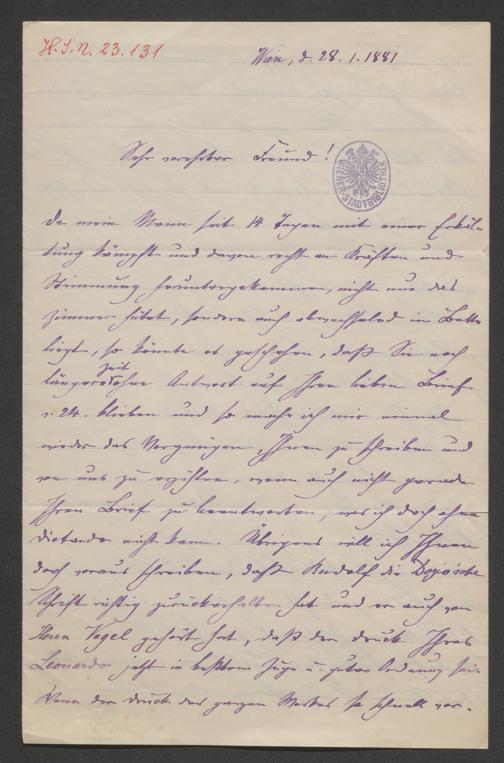 H.I.N. 23.131
Wien, d. 28.1.1881
Sehr verehrter Freund!
WIENER-STADTBIBLIOTHEK
Da mein Mann seit 14 Tagen mit einer Erkäl-
tung kämpft und davon recht an Kräften und
Stimmung heruntergekommen, nicht nur das
Zimmer hütet, sondern auch abwechselnd im Bette
liegt, so könnte es geschehen, daß Sie noch
längere Zeit ohne Antwort auf Ihren lieben Brief
v. 24. blieben und so mache ich mir einmal
wieder das Vergnügen, Ihnen zu schreiben und
von uns zu erzählen, wenn auch nicht gerade
Ihren Brief zu beantworten, was ich doch ohne
Dictando nicht kann. Übrigens will ich Ihnen
doch voraus schreiben, daß Rudolf die Dozio'sche
Schrift richtig zurückerhalten hat und er auch von
Herrn Vogel gehört hat, daß der Druck Ihres
Leonardo jetzt in bestem Zuge u. guter Ordnung sei.
Wenn der Druck des ganzen Werkes so schnell vor-